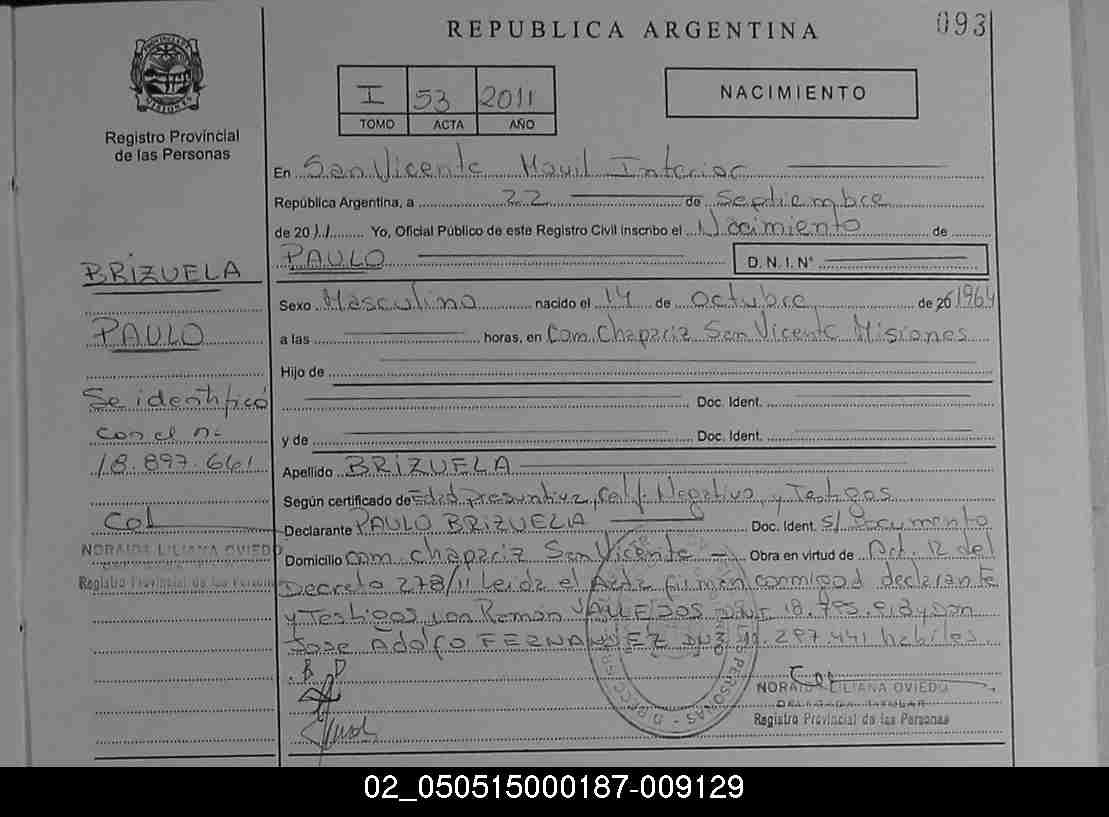 REPUBLICA ARGENTINA
093
Registro Provincial
de las Personas
I 53 2011
TOMO ACTA AÑO
NACIMIENTO
En San Vicente Movil Interior
República Argentina, a 22 de Septiembre
de 2011 Yo, Oficial Público de este Registro Civil inscribo el Nacimiento de
PAULO D.N.I. N°
BRIZUELA
PAULO
Se identificó
con el n-
18.897.661
Sexo Masculino nacido el 14 de Octubre de 1964
a las horas, en Com. Chapariz San Vicente Misiones
Hijo de
Doc. Ident.
y de Doc. Ident.
Apellido BRIZUELA
Según certificado de Edad Presuntiva, Cert. Negativo, y Testigos
Declarante PAULO BRIZUELA Doc. Ident. S/ Documento
Domicilio Com. Chapariz San Vicente Obra en virtud de Art. 12 del
Decreto 278/11 Leida el Acta firman conmigo declarante
y Testigos Ramón VALLEJOS 18.795.913 y Don
Jose Adolfo FERNANDEZ 297.441 habiles.
B P
NORAIDA LILIANA OVIEDO
Registro Provincial de las Personas
NORAIDA LILIANA OVIEDO
DELEGADA TITULAR
Registro Provincial de las Personas
02_050515000187-009129